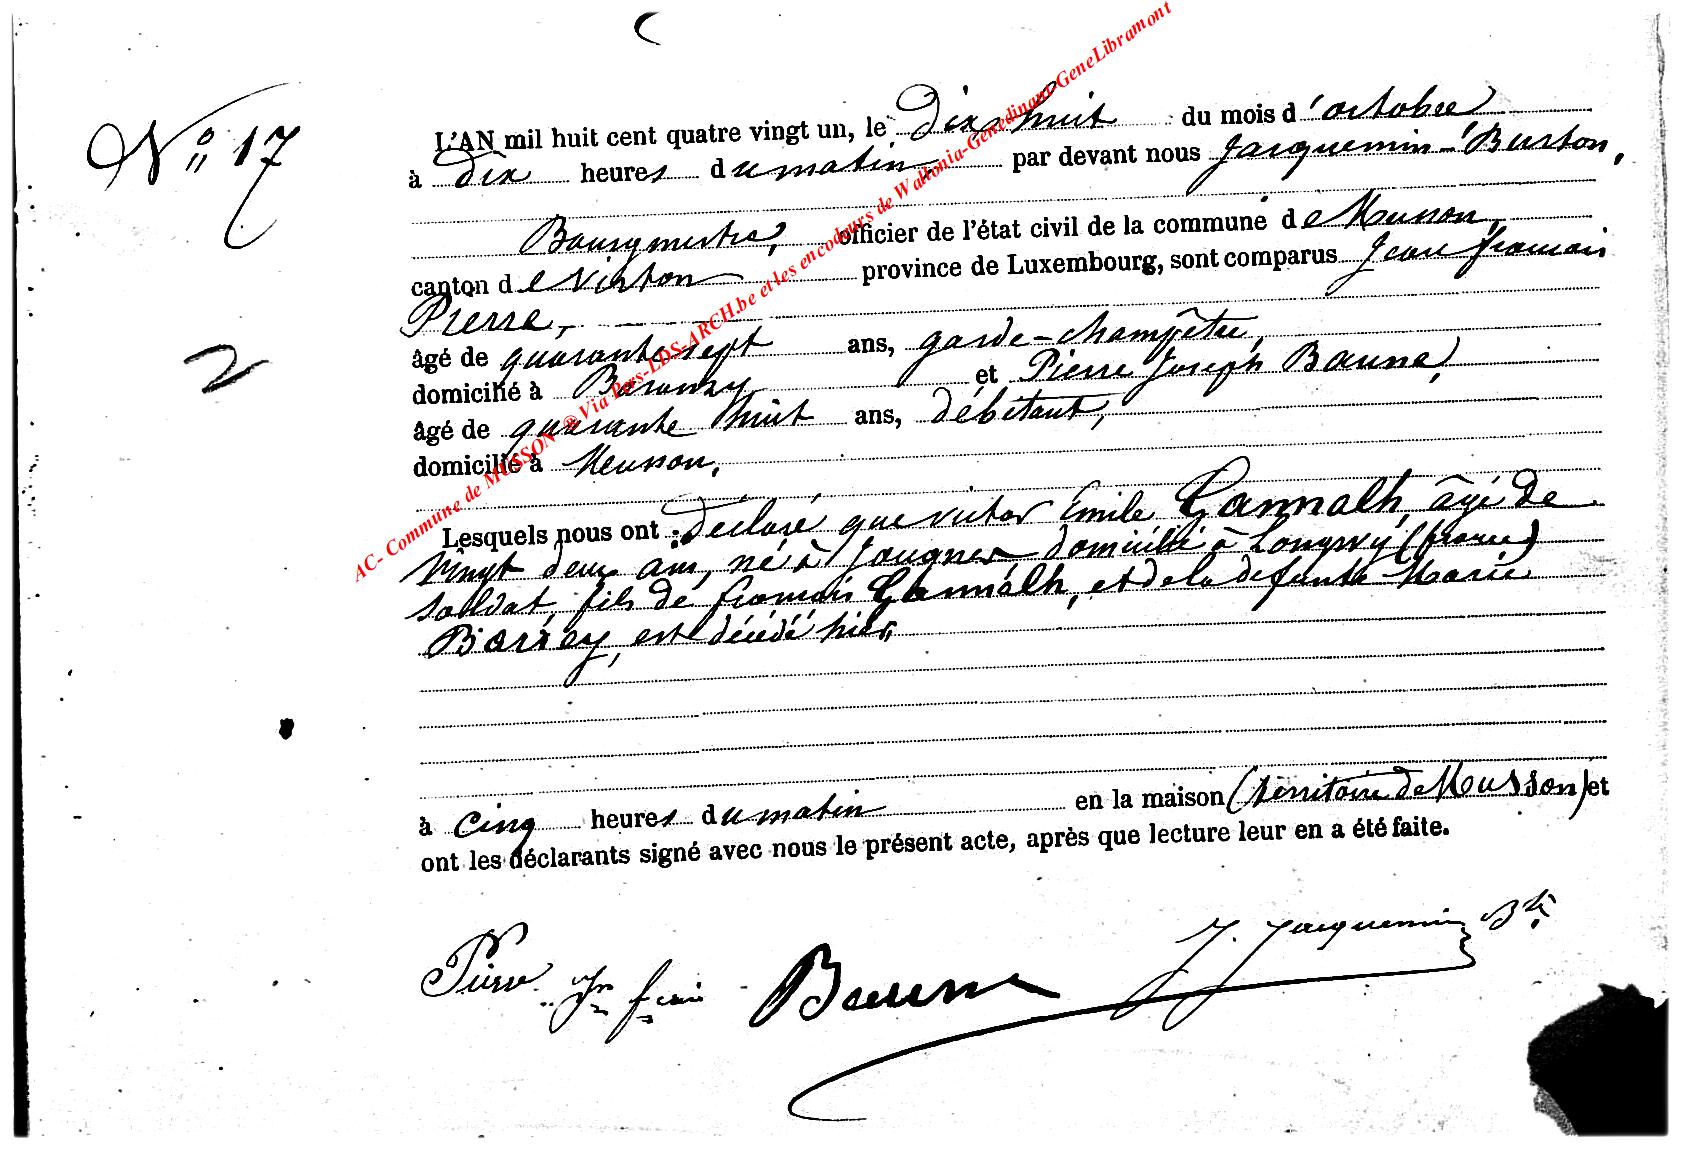 N° 17
L'AN mil huit cent quatre vingt un, le Dix huit du mois d'octobre
à Dix heures du matin par devant nous Jacquemin-Burton,
Bourgmestre, officier de l'état civil de la commune de Musson,
canton de Virton province de Luxembourg, sont comparus Jean françois
Pierre,
âgé de quarante sept ans, garde-champêtre,
domicilié à Baranzy et Pierre Joseph Baune,
âgé de quarante huit ans, débitant,
domicilié à Musson,
Lesquels nous ont déclaré que victor Emile Gannalh, âgé de
Vingt deux ans, né à Jougnes, domicilié à Longwy (france)
soldat, fils de françois Gannalh, et de la defunte Marie
Barrey, est décédé hier,
à cinq heures du matin en la maison (térritoire de Musson) et
ont les déclarants signé avec nous le présent acte, après que lecture leur en a été faite.
2
Pierre Jn Baune J. Jacquemin Bton
AC- Commune de MUSSON @ Via Pers-LDS-ARCH.be et les encodeurs de Wallonia-Genedinant-GeneLibramont